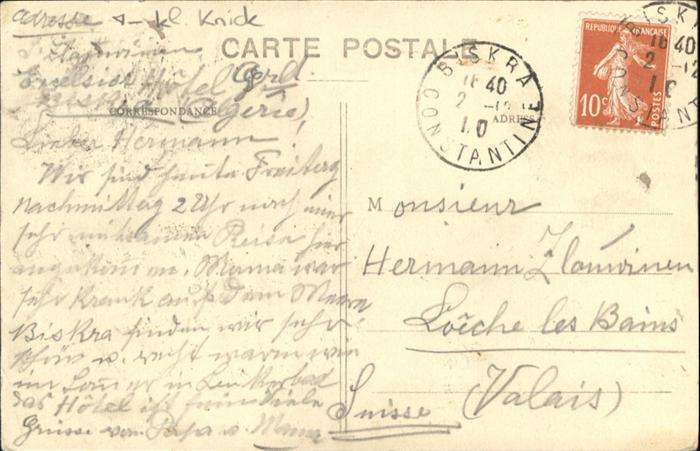 Adresse + kl. Knick
CARTE POSTALE
Excelsior Hôtel
Biskra (Algérie)
CORRESPONDANCE
Lieber Hermann!
Wir sind heute Freitag
nachmittag 2 Uhr nach einer
sehr Reise hier
angekommen. Mama war
sehr krank auf dem Meere
Biskra finden wir sehr
schön u. recht warm wie
im in Leukerbad
das Hôtel ist fein Viele
Grüsse von Papa u. Mama
BISKRA
16 40
2 -12
10
CONSTANTINE
ADRESSE
REPUBLIQUE FRANÇAISE
10c
POSTES
BISKRA
16 40
2 -12
10
CONSTANTINE
Monsieur
Hermann
Loèche les Bains
(Valais)
Suisse